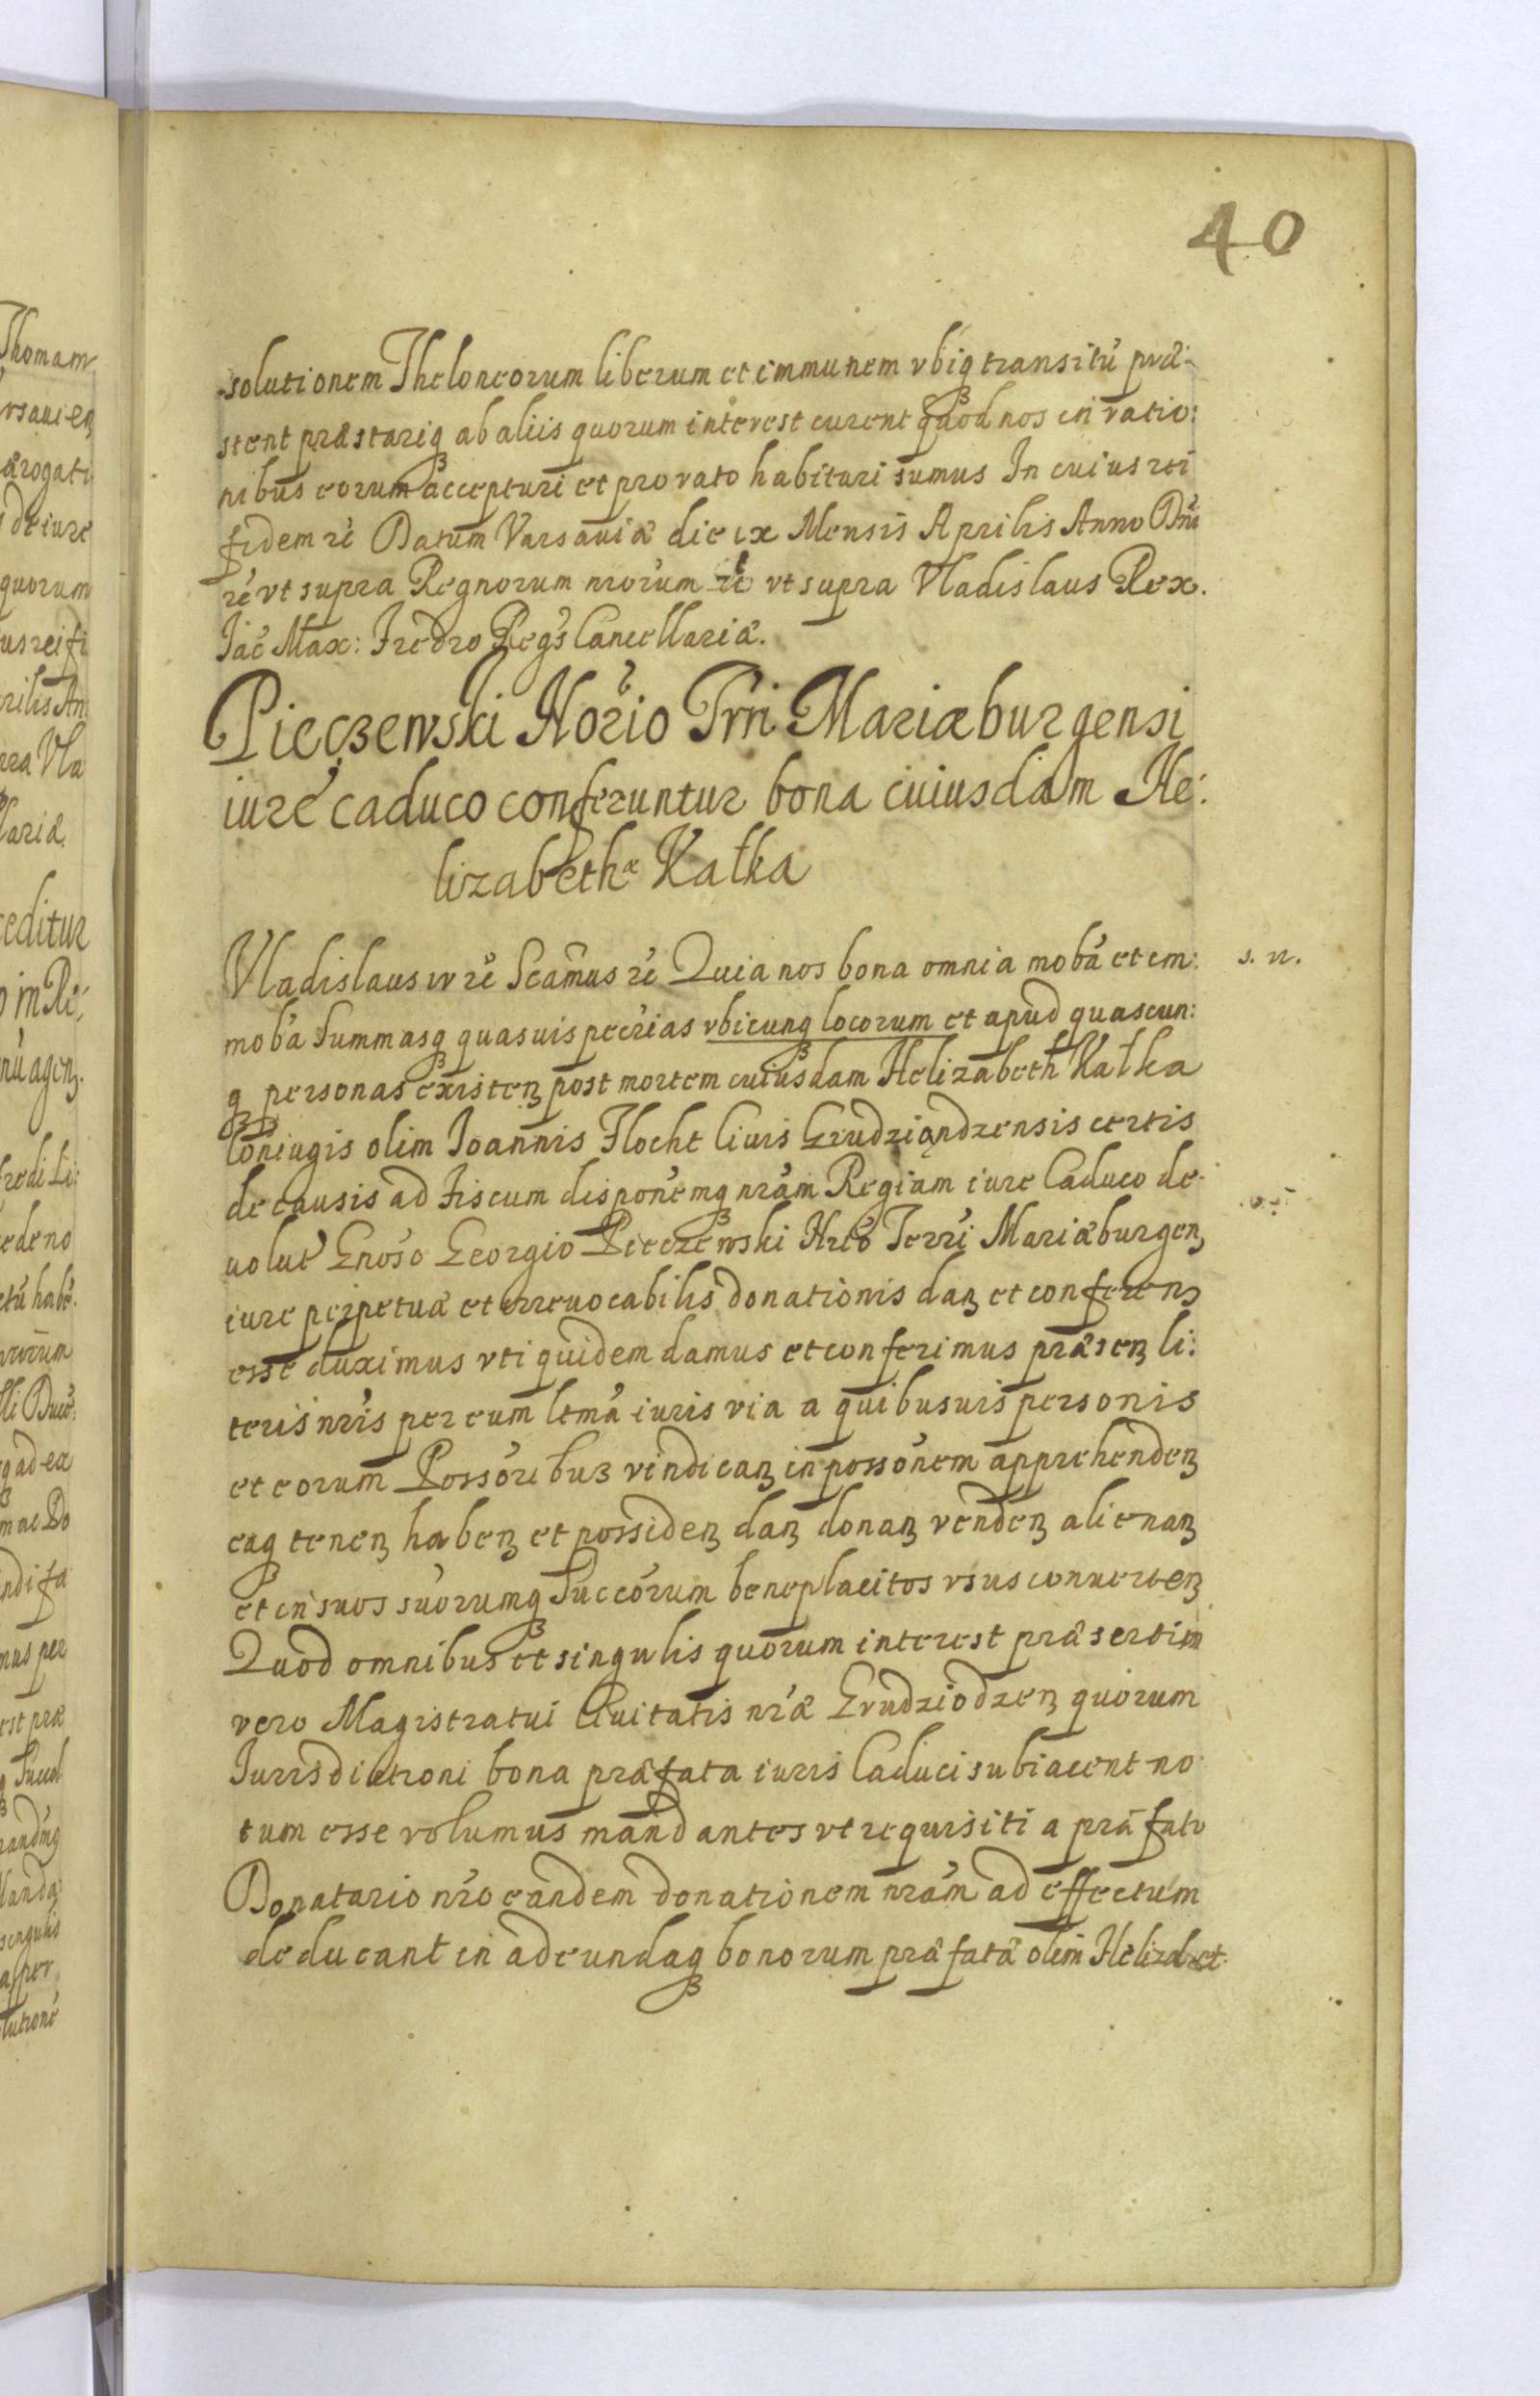 40
solutionem Theloneorum liberum et immunem vbiqꝫ transitú præ-
stent præstariqꝫ ab aliis quorum interest curent quod nos in ratio:
nibus eorum accepturi et pro rato habituri sumus In cuius rei
fidem ré Datum Varsauiæ die ix Mensis Aprilis Anno Dni
ré vt supra Regnorum nrorum ré vt supra Vladislaus Rex.
Jac Max: Fredro Regs Cancellariæ.
Pieczewski Norio Trri Mariæburgensi
iure caduco conferuntur bona cuiusdam He:
lizabethæ Katka
Vladislaus iv ré Scamus ré Quia nos bona omnia moba et im: s. n.
moba summasqꝫ quasuis pecrias vbicunqꝫ locorum et apud quascun:
qꝫ personas existenꝫ post mortem cuiusdam Helizabeth Katka
Coniugis olim Joannis Flocht Ciuis Grudziąndzensis certis
de causis ad fiscum disponemqꝫ nram Regiam iure Caduco de-
uolut Gnoso Georgio Pieczewski Nrio Terri Mariæburgenꝫ
iure perpetuæ et irreuocabilis donationis danꝫ et conferenꝫ
esse duximus vti quidem damus et conferimus præsenꝫ li:
teris nris per eum ltma iuris via a quibusuis personis
et eorum Possoribus vindicanꝫ in possonem apprehendenꝫ
eaqꝫ tenenꝫ habenꝫ et possidenꝫ danꝫ donanꝫ vendenꝫ alienanꝫ
et in suos suorumqꝫ Succorum beneplacitos vsus conuertenꝫ
Quod omnibus et singulis quorum interest præsertim
vero Magistratui Ciuitatis nræ Grudziodzenꝫ quorum
Jurisdictioni bona præfata iuris Caduci subiacent no
tum esse volumus mandantes vt requisiti a præfato
Donatario nro eandem donationem nram ad effectum
deducant in adeundaqꝫ bonorum præfatæ olim